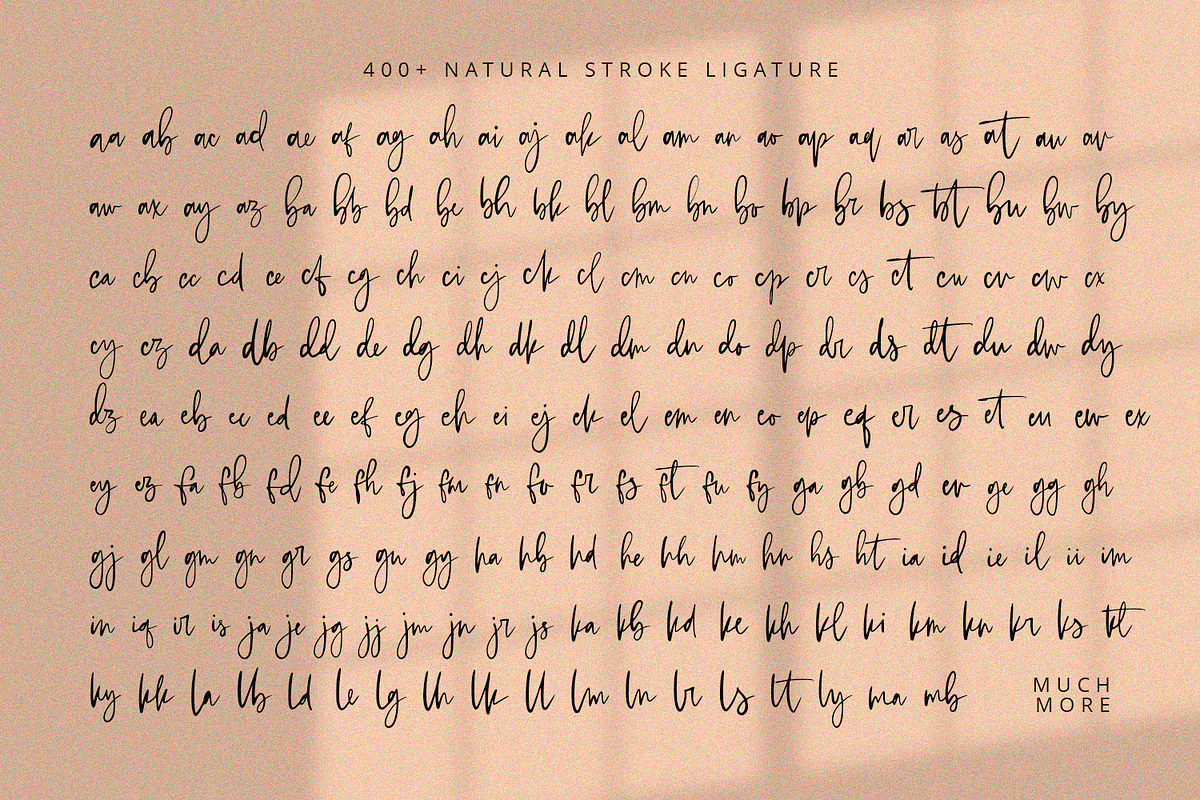 400+ NATURAL STROKE LIGATURE
aa ab ac ad ae af ag ah ai aj ak al am an ao ap aq ar as at au av
aw ax ay az ba bb bd be bh bk bl bm bn bo bp br bs bt bu bw by
ca cb cc cd ce cf cg ch ci cj ck cl cm cn co cp cr cs ct cu cv cw cx
cy cz da db dd de dg dh dk dl dm dn do dp dr ds dt du dw dy
dz ea eb ec ed ee ef eg eh ei ej ek el em en eo ep eq er es et eu ew ex
ey ez fa fb fd fe fh fj fm fn fo fr fs ft fu fy ga gb gd ev ge gg gh
gj gl gm gn gr gs gu gy ha hb hd he hh hm hn hs ht ia id ie il ii im
in iq ir is ja je jg jj jm jn jr js ka kb kd ke kh kl ki km kn kr ks kt
ky kk la lb ld le lg lh lk ll lm ln lr ls lt ly ma mb
MUCH
MORE